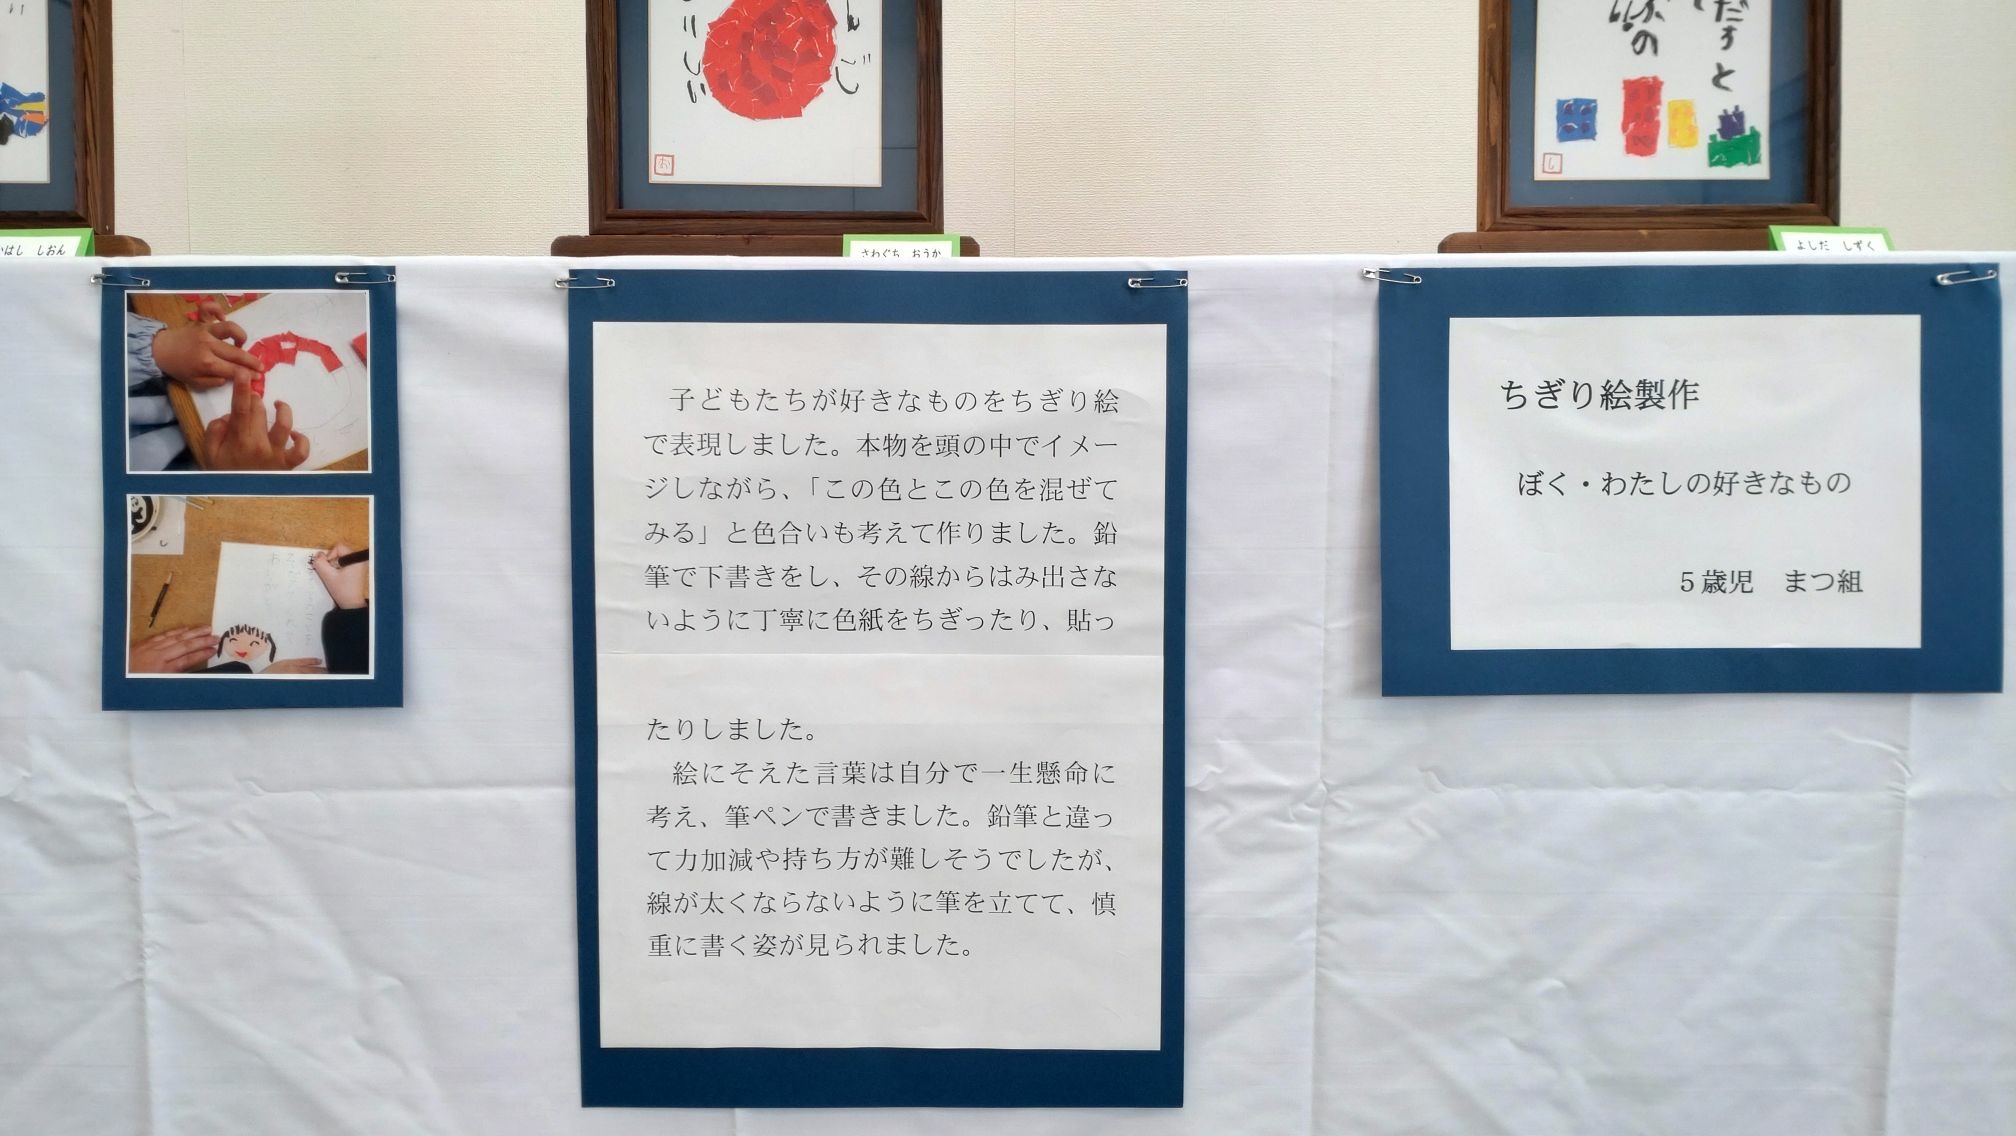 んご
おいしい
だすと
ぶの
お
し
かはし しおん
さわぐち おうか
よしだ しずく
ちぎり絵製作
ぼく・わたしの好きなもの
5歳児 まつ組
子どもたちが好きなものをちぎり絵
で表現しました。本物を頭の中でイメー
ジしながら、「この色とこの色を混ぜて
みる」と色合いも考えて作りました。鉛
筆で下書きをし、その線からはみ出さな
いように丁寧に色紙をちぎったり、貼っ
たりしました。
絵にそえた言葉は自分で一生懸命に
考え、筆ペンで書きました。鉛筆と違っ
て力加減や持ち方が難しそうでしたが、
線が太くならないように筆を立てて、慎
重に書く姿が見られました。